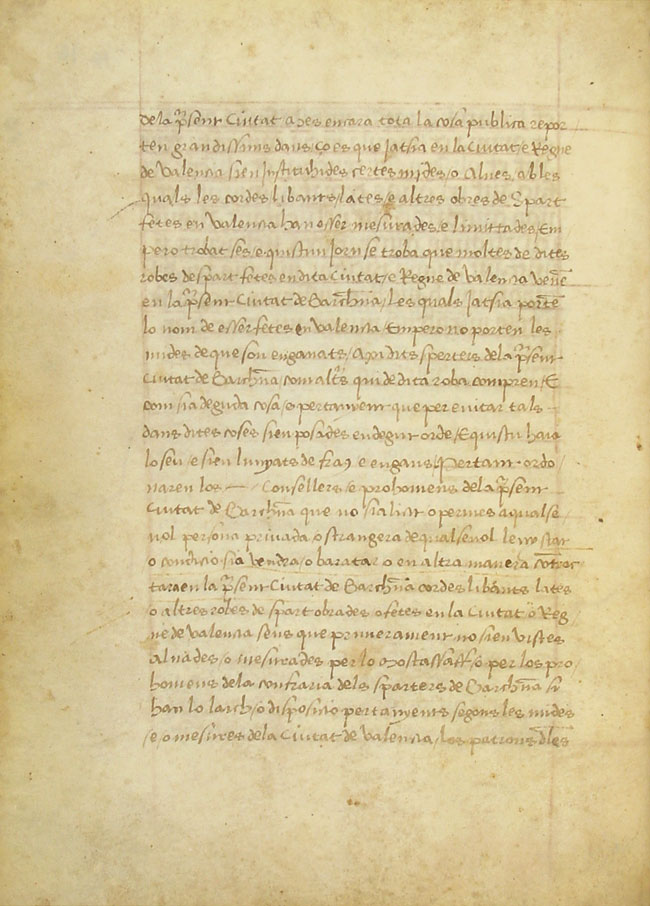 de la p̃sent Ciutat a pes encara tota la cosa publica repor
ten grandissims dans / ço es que jatsia en la Ciutat / e Regne
de Valencia sien instituhides certes mides / o Alnes / ab les
quals les cordes libants / lates / e altres obres de spart
fetes en Valencia han esser mesurades / e limittades / Em
pero trobat ses / e quiscun jorn se troba que moltes de dites
robes de spart fetes en dita Ciutat / e Regne de Valencia venē
en la p̃sent Ciutat de Barchña / les quals jatsia portē
lo nom de esser fetes en Valencia / Empero no porten les
mides de que son enganats / Axi dits sperters de la p̃sent
Ciutat de Barchña / com alt̃s qui de dita roba compren / E
com sia deguda cosa / e pertanyent que per evitar tals
dans dites coses sien posades en degut orde / E quiscu haia
lo seu / e sien lunyats de frau e engans / Pertant ordo
naren los Consellers / e prohomens de la p̃sent
Ciutat de Barchña que no sia licit o permes a qualse
vol persona privada o strangera de qualsevol ley o stat
o condicio sia vendra / o baratar o en altra manera cōtrac
tara en la p̃sent Ciutat de Barchña cordes libants lates
o altres robes de spart obrades o fetes en la Ciutat o Reg
ne de Valencia sens que primerament no sien vistes
alnades / o mesurades per lo Mostassaff / o per los pro
homens de la confraria dels sparters de Barchña si
han lo larch / o disposicio pertanyents segons les mides
e / o mesures de la Ciutat de Valencia / los patrons d̃les